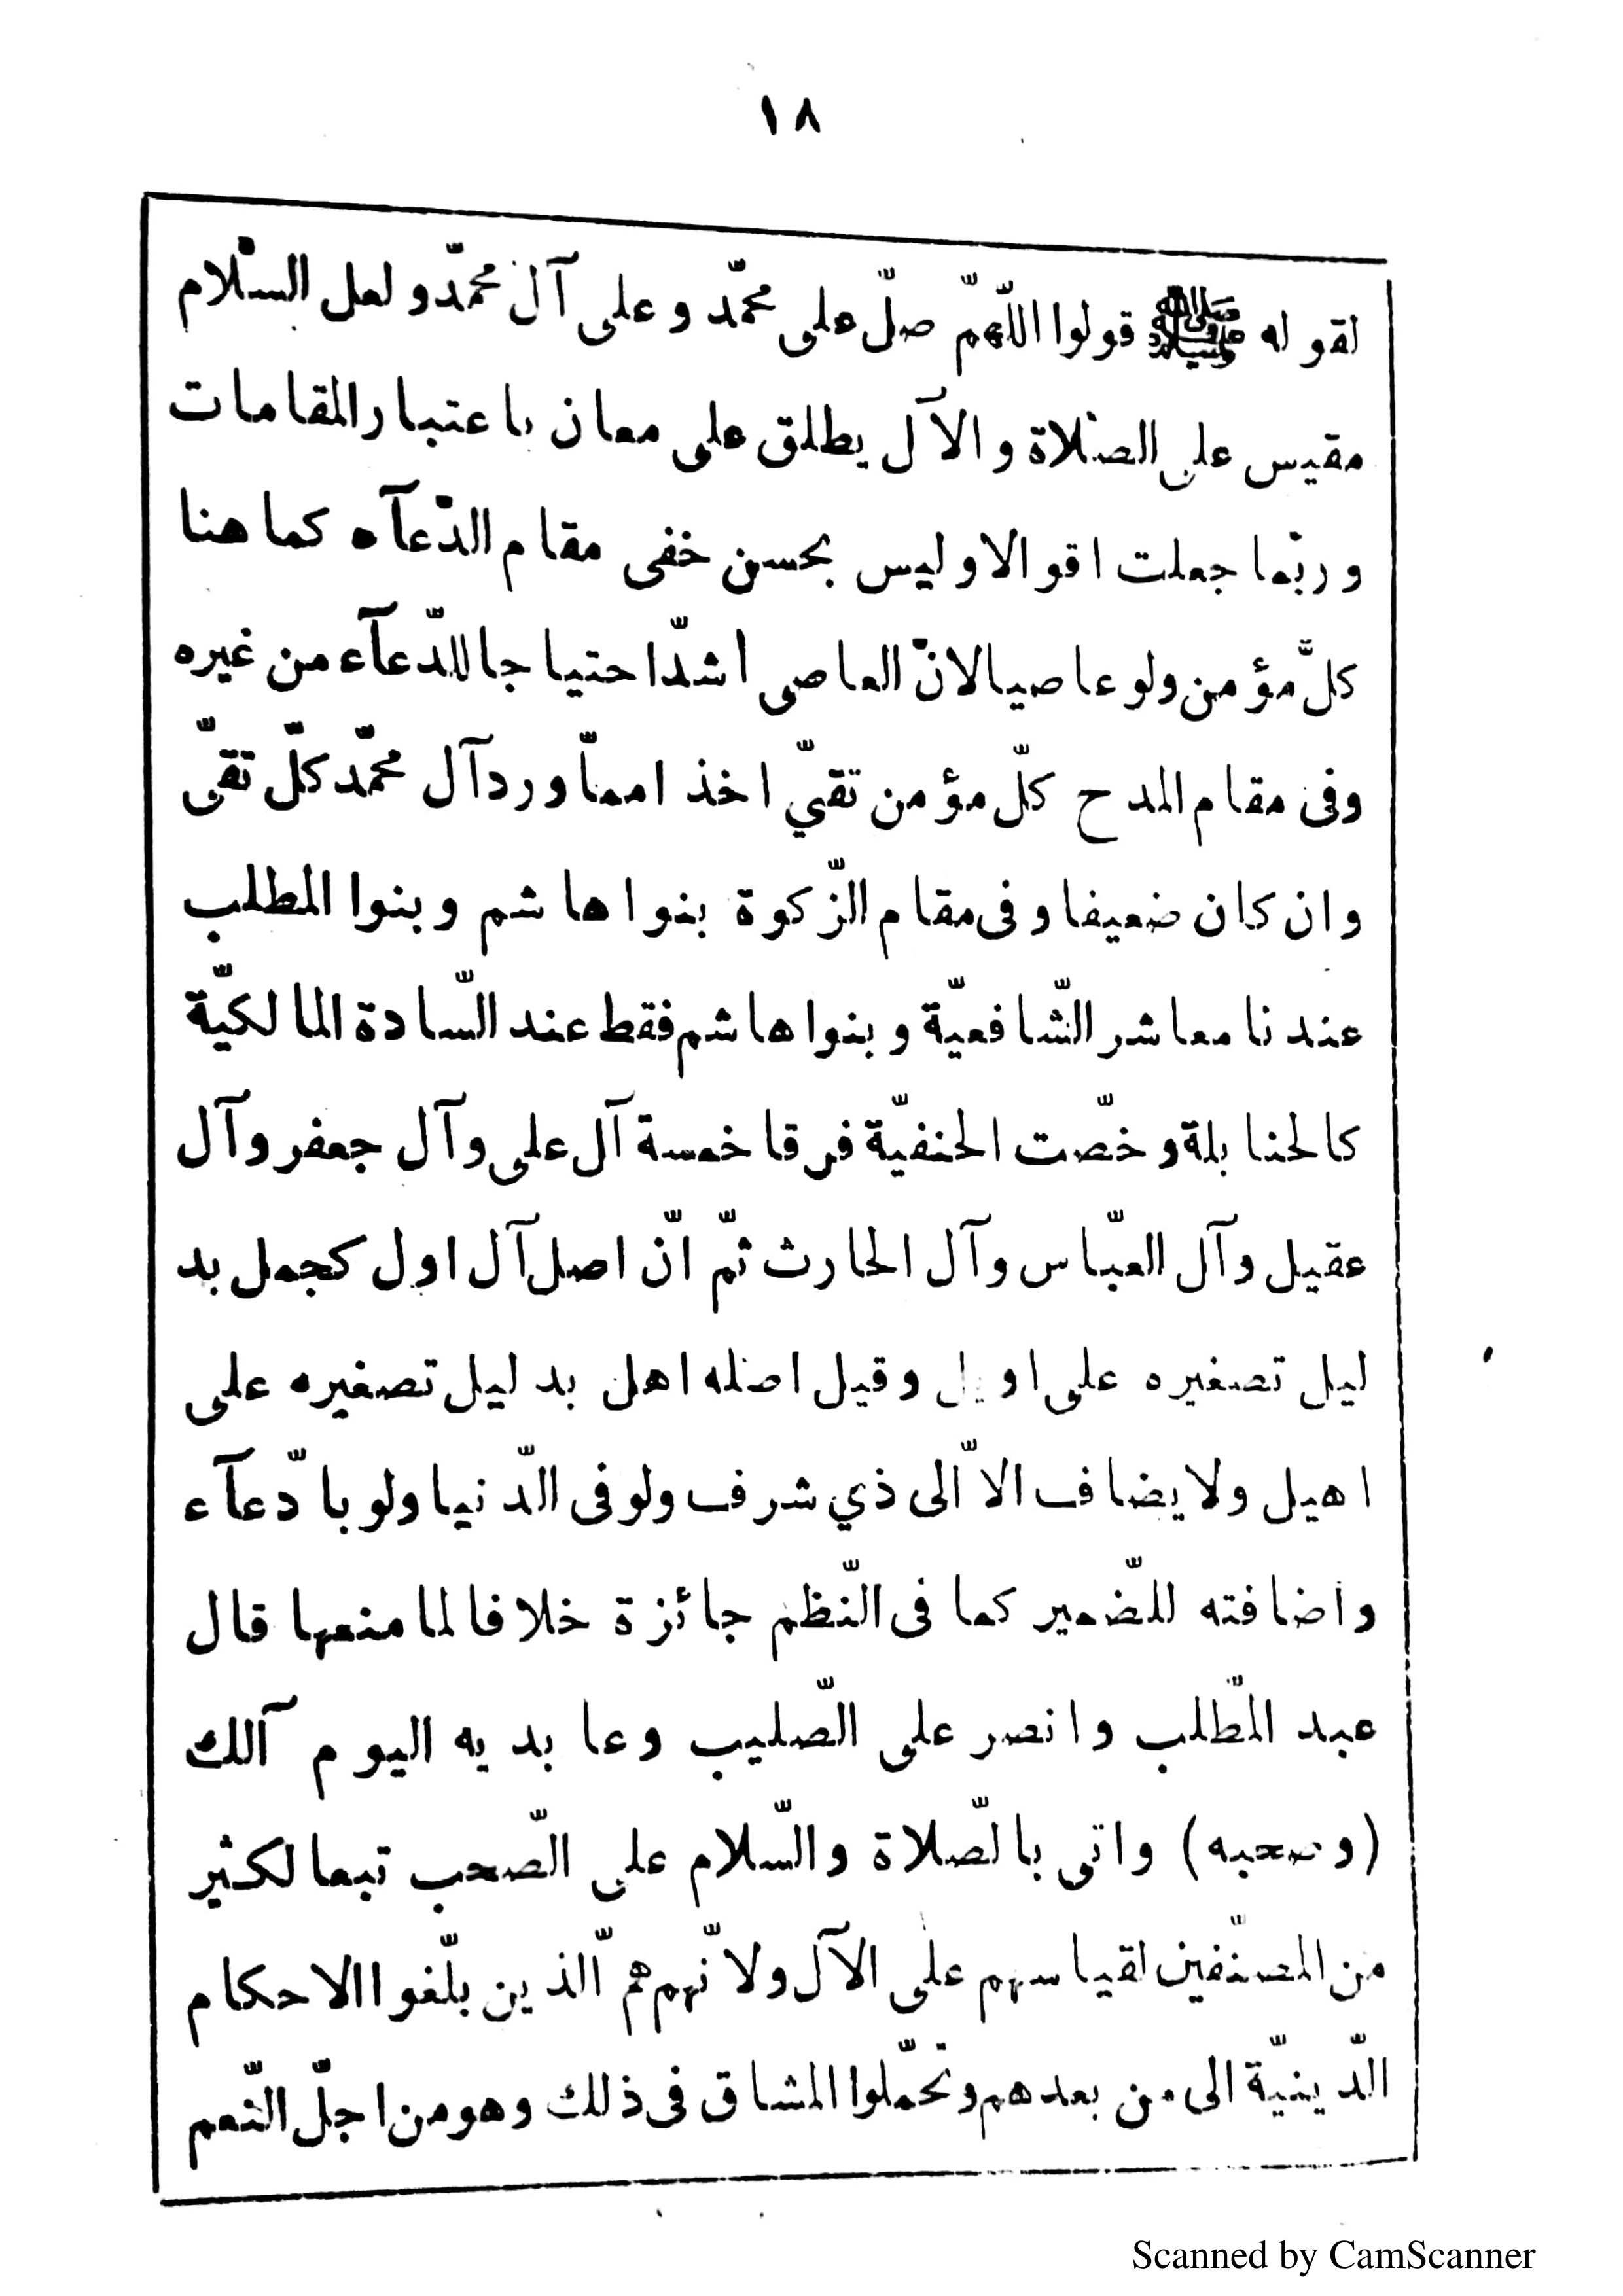 ١٨
لقوله ﷺ قولوا اللّهمّ صلّ على محمّد وعلى آل محمّد ولعل السّلام
مقيس على الصّلاة والآل يطلق على معان باعتبار المقامات
وربّما جعلت اقوالا وليس بحسن خفى مقام الدّعآه كما هنا
كلّ مؤمن ولو عاصيا لانّ العاصى اشدّ احتياجا للدّعآء من غيره
وفى مقام المدح كلّ مؤمن تقىّ اخذ امماّ ورد آل محمّد كلّ تقىّ
وان كان ضعيفا وفى مقام الزّكوة بنوا هاشم وبنوا المطلب
عندنا معاشر الشّافعيّة وبنوا هاشم فقط عند السّادة المالكيّة
كالحنابلة وخصّت الحنفيّة فرقا خمسة آل على وآل جعفر وآل
عقيل وآل العبّاس وآل الحارث ثمّ انّ اصل آل اول كجمل بد
ليل تصغيره على اويل وقيل اصله اهل بدليل تصغيره على
اهيل ولا يضاف الاّ الى ذي شرف ولو فى الدّنيا ولو بادّعآء
واضافته للضّمير كما فى النّظم جائزة خلافا لما منعها قال
عبد المطّلب وانصر على الصّليب وعابديه اليوم آلك
(وصحبه) واتى بالصّلاة والسّلام على الصّحب تبعا لكثير
من المصنّفين لقياسهم على الآل ولانّهم هم الّذين بلّغوا الاحكام
الدّينيّة الى من بعدهم وتحمّلوا المشاق فى ذلك وهو من اجلّ النّعم
Scanned by CamScanner